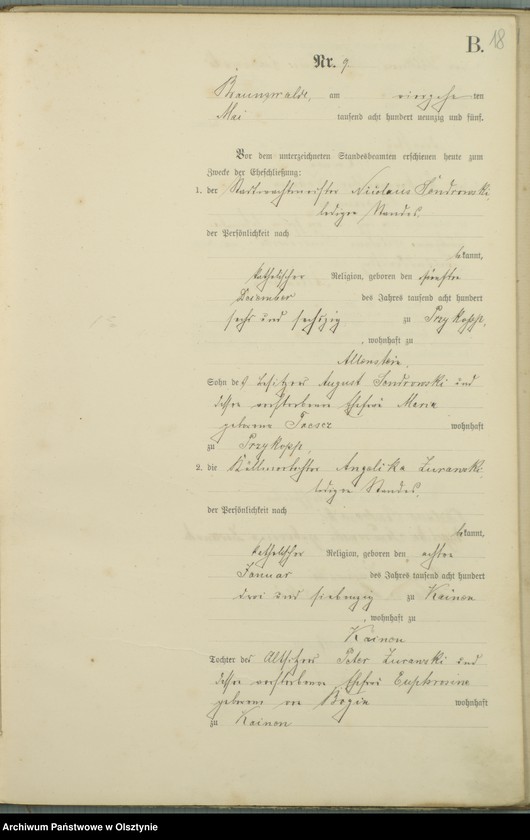 B. 18
Nr. 9
Braunswalde, am vierzehn ten
Mai tausend acht hundert neunzig und fünf.
Vor dem unterzeichneten Standesbeamten erschienen heute zum
Zwecke der Eheschließung:
1. der Nicolaus Sondrowski,
ledigen Standes,
der Persönlichkeit nach
bekannt,
katholischer Religion, geboren den fünften
Dezember des Jahres tausend acht hundert
sechs und sechszig zu Przykopp,
, wohnhaft zu
Allenstein,
Sohn des Besitzers August Sondrowski und
dessen verstorbene Ehefrau Maria
geborene wohnhaft
zu Przykopp,
2. die Angelika Zurawski,
ledigen Standes,
der Persönlichkeit nach
bekannt,
katholischer Religion, geboren den achten
Januar des Jahres tausend acht hundert
drei und siebenzig zu Kainen
, wohnhaft zu
Kainen
Tochter des Altsitzers Peter Zurawski und
dessen verstorbene Ehefrau
geborene von wohnhaft
zu Kainen
Archiwum Państwowe w Olsztynie